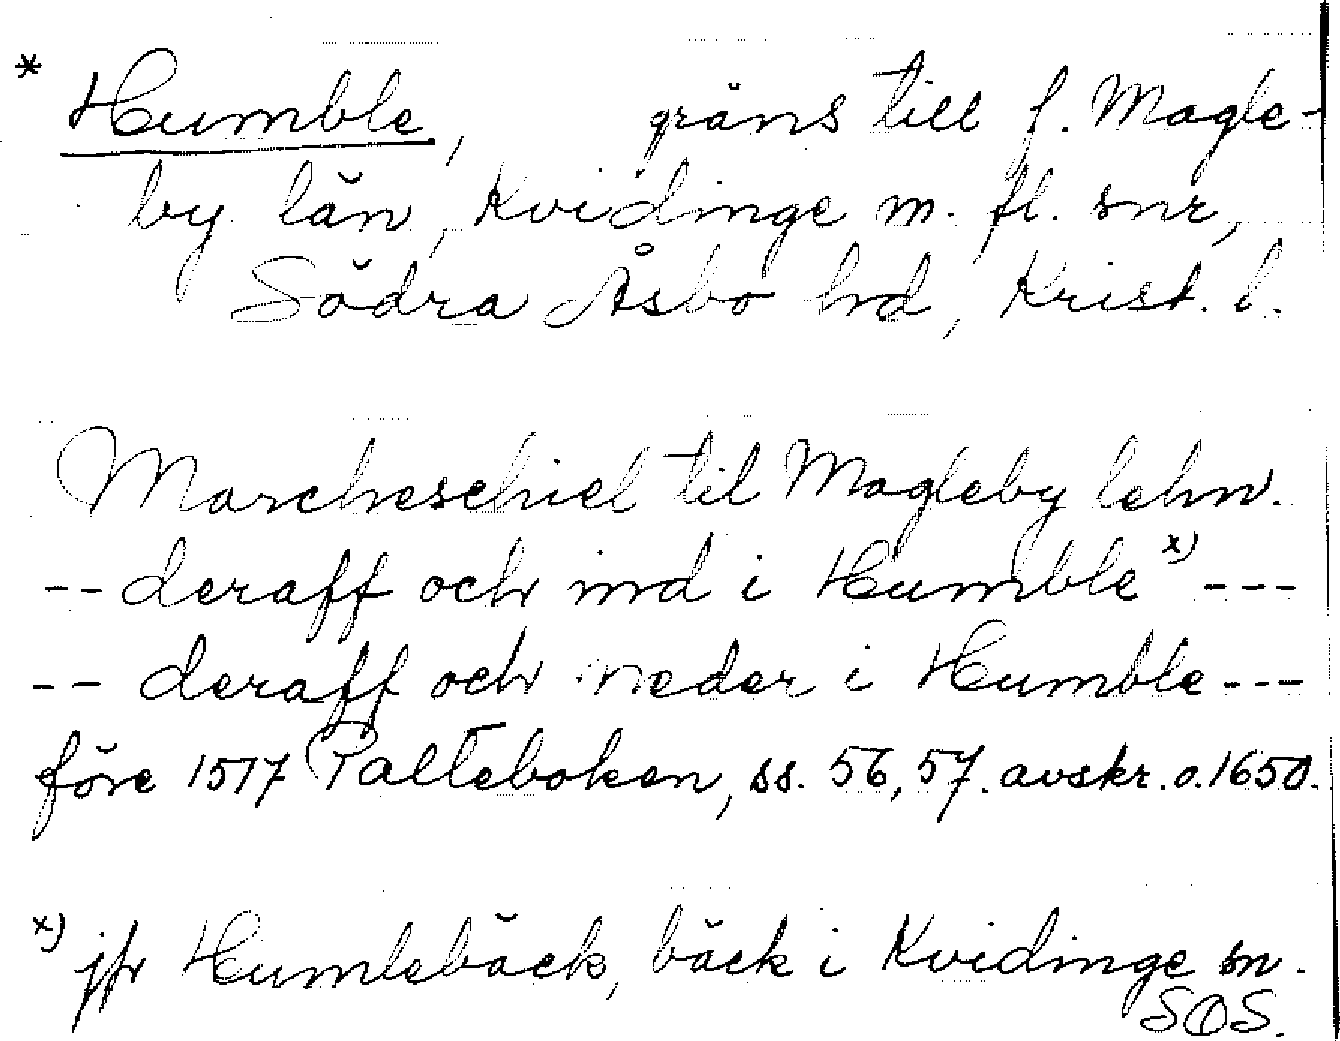 * Humble, gräns till f. Magle-
by län, Kvidinge m. fl. snr,
Södra Åsbo hd, Krist. l.
Marcheschiel til Magleby lehn.
-- deraff och ind i Humble x) ---
-- deraff och neder i Humble ---
före 1517 Palteboken, ss. 56, 57. avskr. o. 1650.
x) jfr Humlebäck, bäck i Kvidinge sn.
SOS.